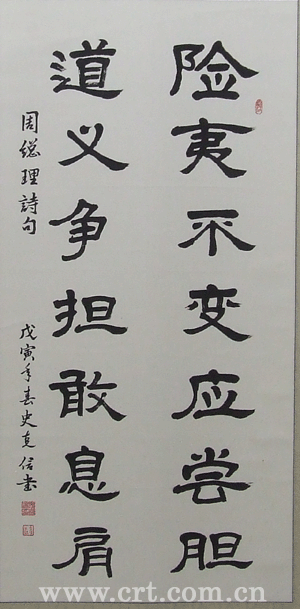 险夷不变应尝胆
道义争担敢息肩
周總理詩句
戊寅年春史克信书
www.crt.com.cn